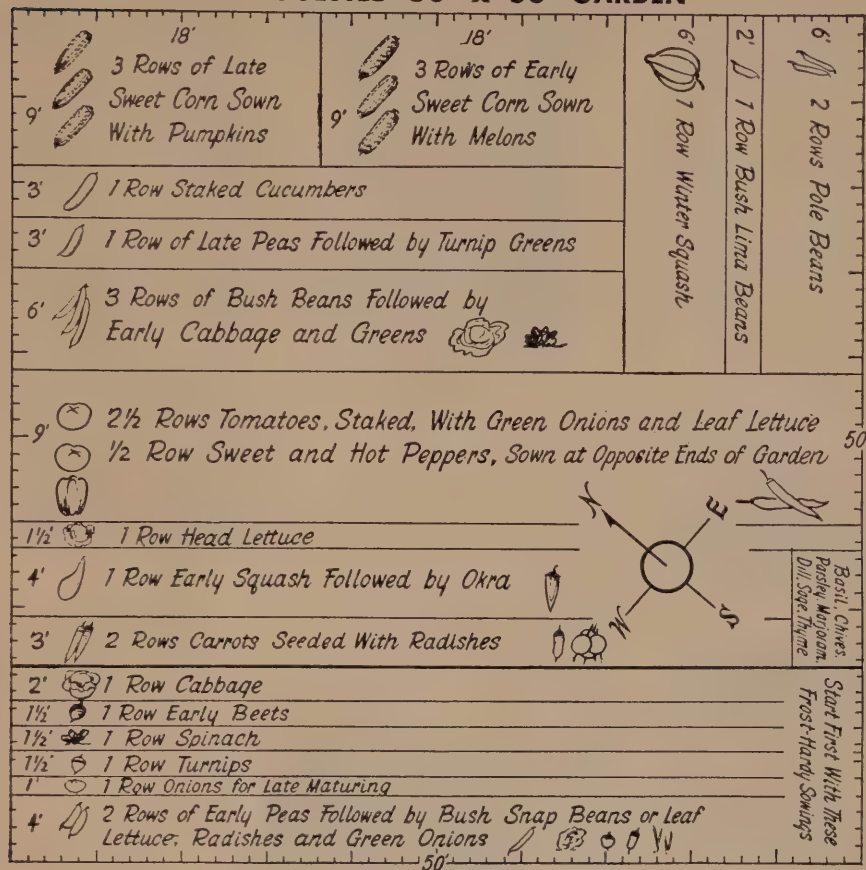 18'
3 Rows of Late
9' Sweet Corn Sown
With Pumpkins
18'
3 Rows of Early
9' Sweet Corn Sown
With Melons
6' 1 Row Winter Squash
2' 1 Row Bush Lima Beans
6' 2 Rows Pole Beans
3' 1 Row Staked Cucumbers
3' 1 Row of Late Peas Followed by Turnip Greens
6' 3 Rows of Bush Beans Followed by
Early Cabbage and Greens
9' 2½ Rows Tomatoes, Staked, With Green Onions and Leaf Lettuce
½ Row Sweet and Hot Peppers, Sown at Opposite Ends of Garden
50'
1½' 1 Row Head Lettuce
N
E
W
S
4' 1 Row Early Squash Followed by Okra
3' 2 Rows Carrots Seeded With Radishes
Basil, Chives,
Parsley, Marjoram,
Dill, Sage, Thyme
2' 1 Row Cabbage
1½' 1 Row Early Beets
1½' 1 Row Spinach
1½' 1 Row Turnips
1' 1 Row Onions for Late Maturing
4' 2 Rows of Early Peas Followed by Bush Snap Beans or Leaf
Lettuce, Radishes and Green Onions
Start First With These
Frost-Hardy Sowings
50'